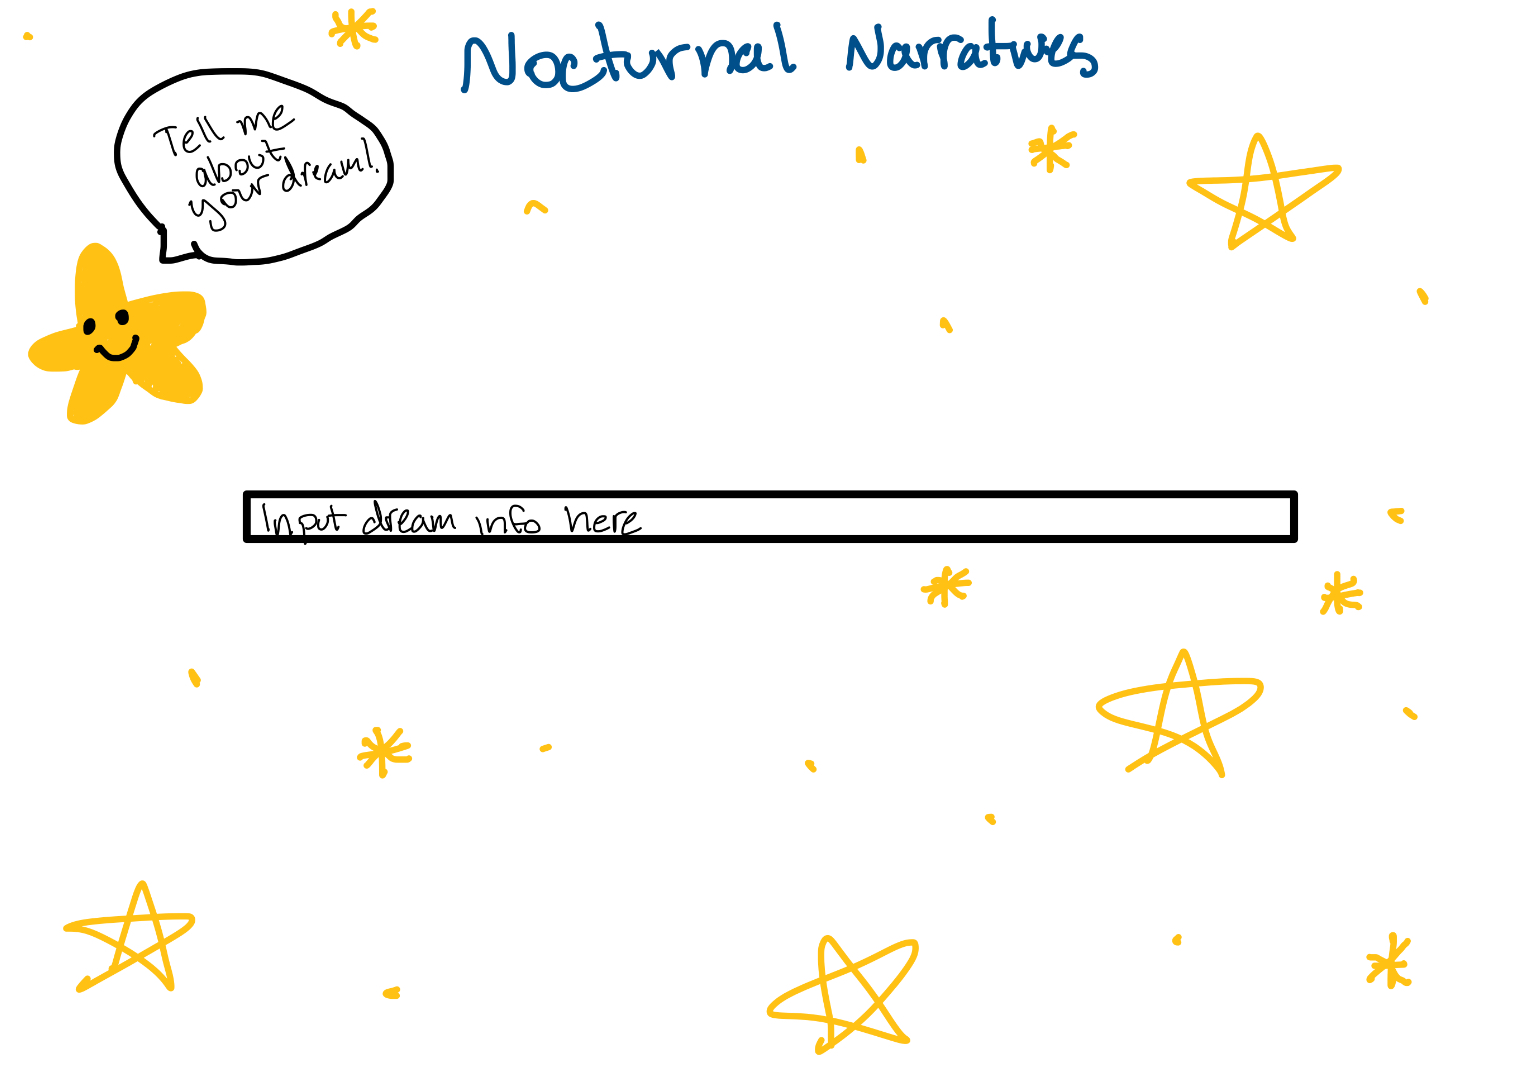 Nocturnal Narratives
Tell me
about
your dream!
Input dream info here